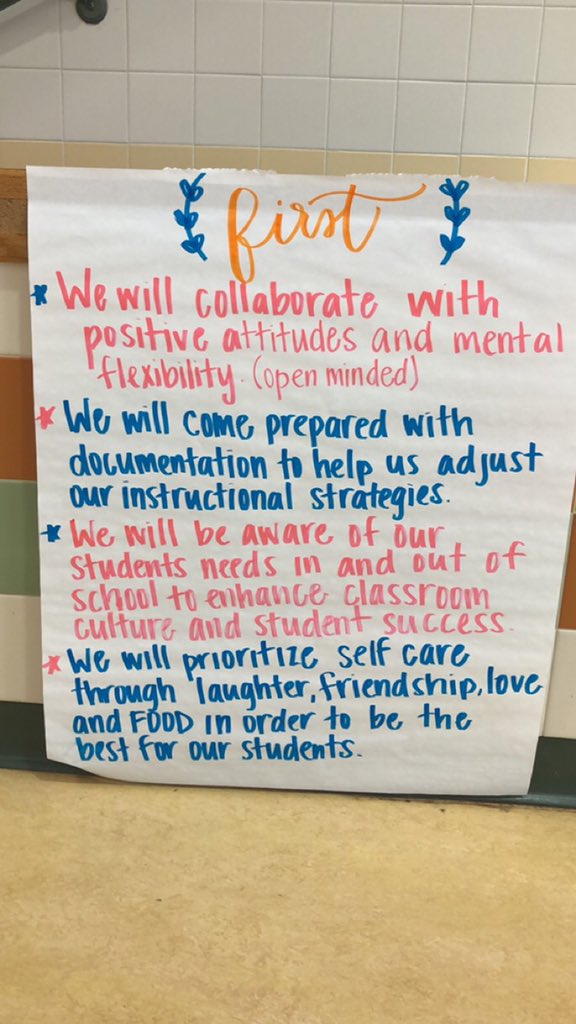 first
We will collaborate with
positive attitudes and mental
flexibility. (open minded)
We will come prepared with
documentation to help us adjust
our instructional strategies.
We will be aware of our
students needs in and out of
school to enhance classroom
culture and student success.
We will prioritize self care
through laughter, friendship, love
and FOOD in order to be the
best for our students.